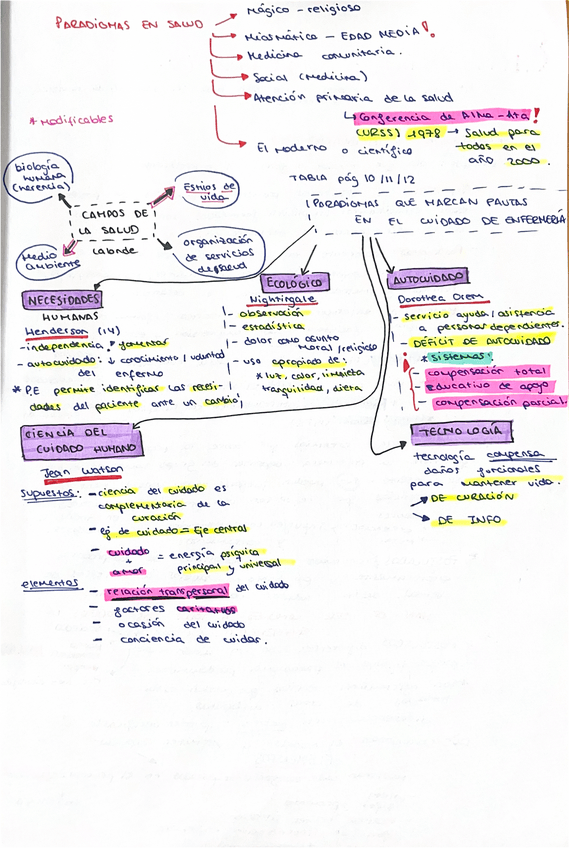 PARADIGMAS EN SALUD
Mágico - religioso
Miasmático - EDAD MEDIA!
Medicina comunitaria.
Social (Medicina)
Atención primaria de la salud
Conferencia de Alma-Ata!
(URSS) 1978 → Salud para
todos en el
año 2000.
El moderno o científico
* Modificables
TABLA pág 10/11/12
biología
humana
(herencia)
Estilos de
vida
CAMPOS DE
LA SALUD
Labonde
Medio
Ambiente
organización
de servicios
de salud
PARADIGMAS QUE MARCAN PAUTAS
EN EL CUIDADO DE ENFERMERÍA
NECESIDADES
HUMANAS
Henderson (14)
- independencia: fomentar
- autocuidado: ↓ conocimiento / voluntad
del enfermo
* P.E permite identificar las necesi-
dades del paciente ante un cambio
ECOLOGICO
Nightingale
- observación
- estadística
- dolor como asunto
moral / religioso
- uso apropiado de:
* luz, calor, limpieza
tranquilidad, dieta
AUTOCUIDADO
Dorothea Orem
- servicio ayuda / asistencia
a personas dependientes.
- DÉFICIT DE AUTOCUIDADO
* sistemas:
- compensación total
- educativo de apoyo
- compensación parcial.
CIENCIA DEL
CUIDADO HUMANO
Jean Watson
Supuestos: - ciencia del cuidado es
complementaria de la
curación
- ej. de cuidado = Eje central
- cuidado
+
amor
= energía psíquica
principal y universal
elementos
- relación transpersonal del cuidado
- factores caritativos
- ocasión del cuidado
- conciencia de cuidar.
TECNOLOGÍA
tecnología compensa
daños funcionales
para mantener vida.
→ DE CURACIÓN
→ DE INFO